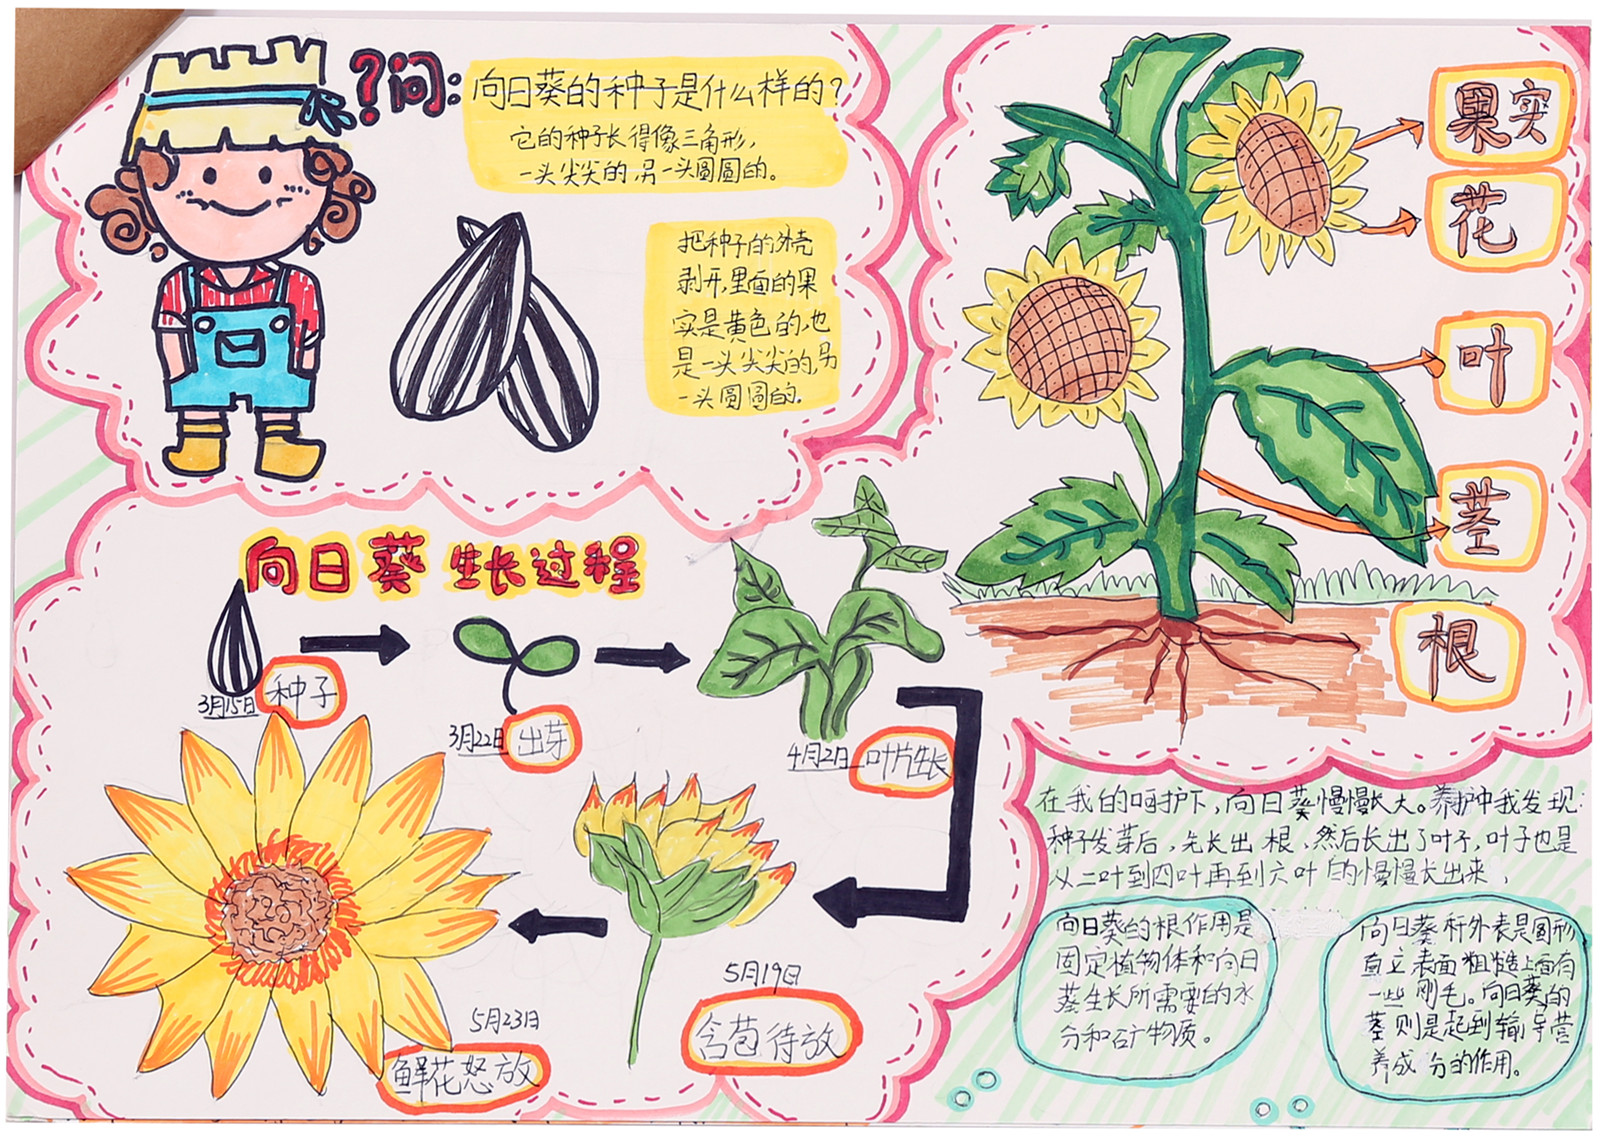 ?问:向日葵的种子是什么样的?
它的种子长得像三角形,
一头尖尖的另一头圆圆的。
把种子的外壳
剥开,里面的果
实是黄色的,也
是一头尖尖的,另
一头圆圆的.
果实
花
叶
茎
根
向日葵生长过程
3月15日 种子
3月22日 出芽
4月2日 叶片生长
5月19日
含苞待放
5月23日
鲜花怒放
在我的呵护下,向日葵慢慢长大。养护中我发现:
种子发芽后,先长出根,然后长出了叶子,叶子也是
从二叶到四叶再到六叶的慢慢长出来,
向日葵的根作用是
固定植物体和向日
葵生长所需要的水
分和矿物质。
向日葵秆外表是圆形
直立表面粗糙上面有
一些刚毛。向日葵的
茎则是起到输导营
养成分的作用。